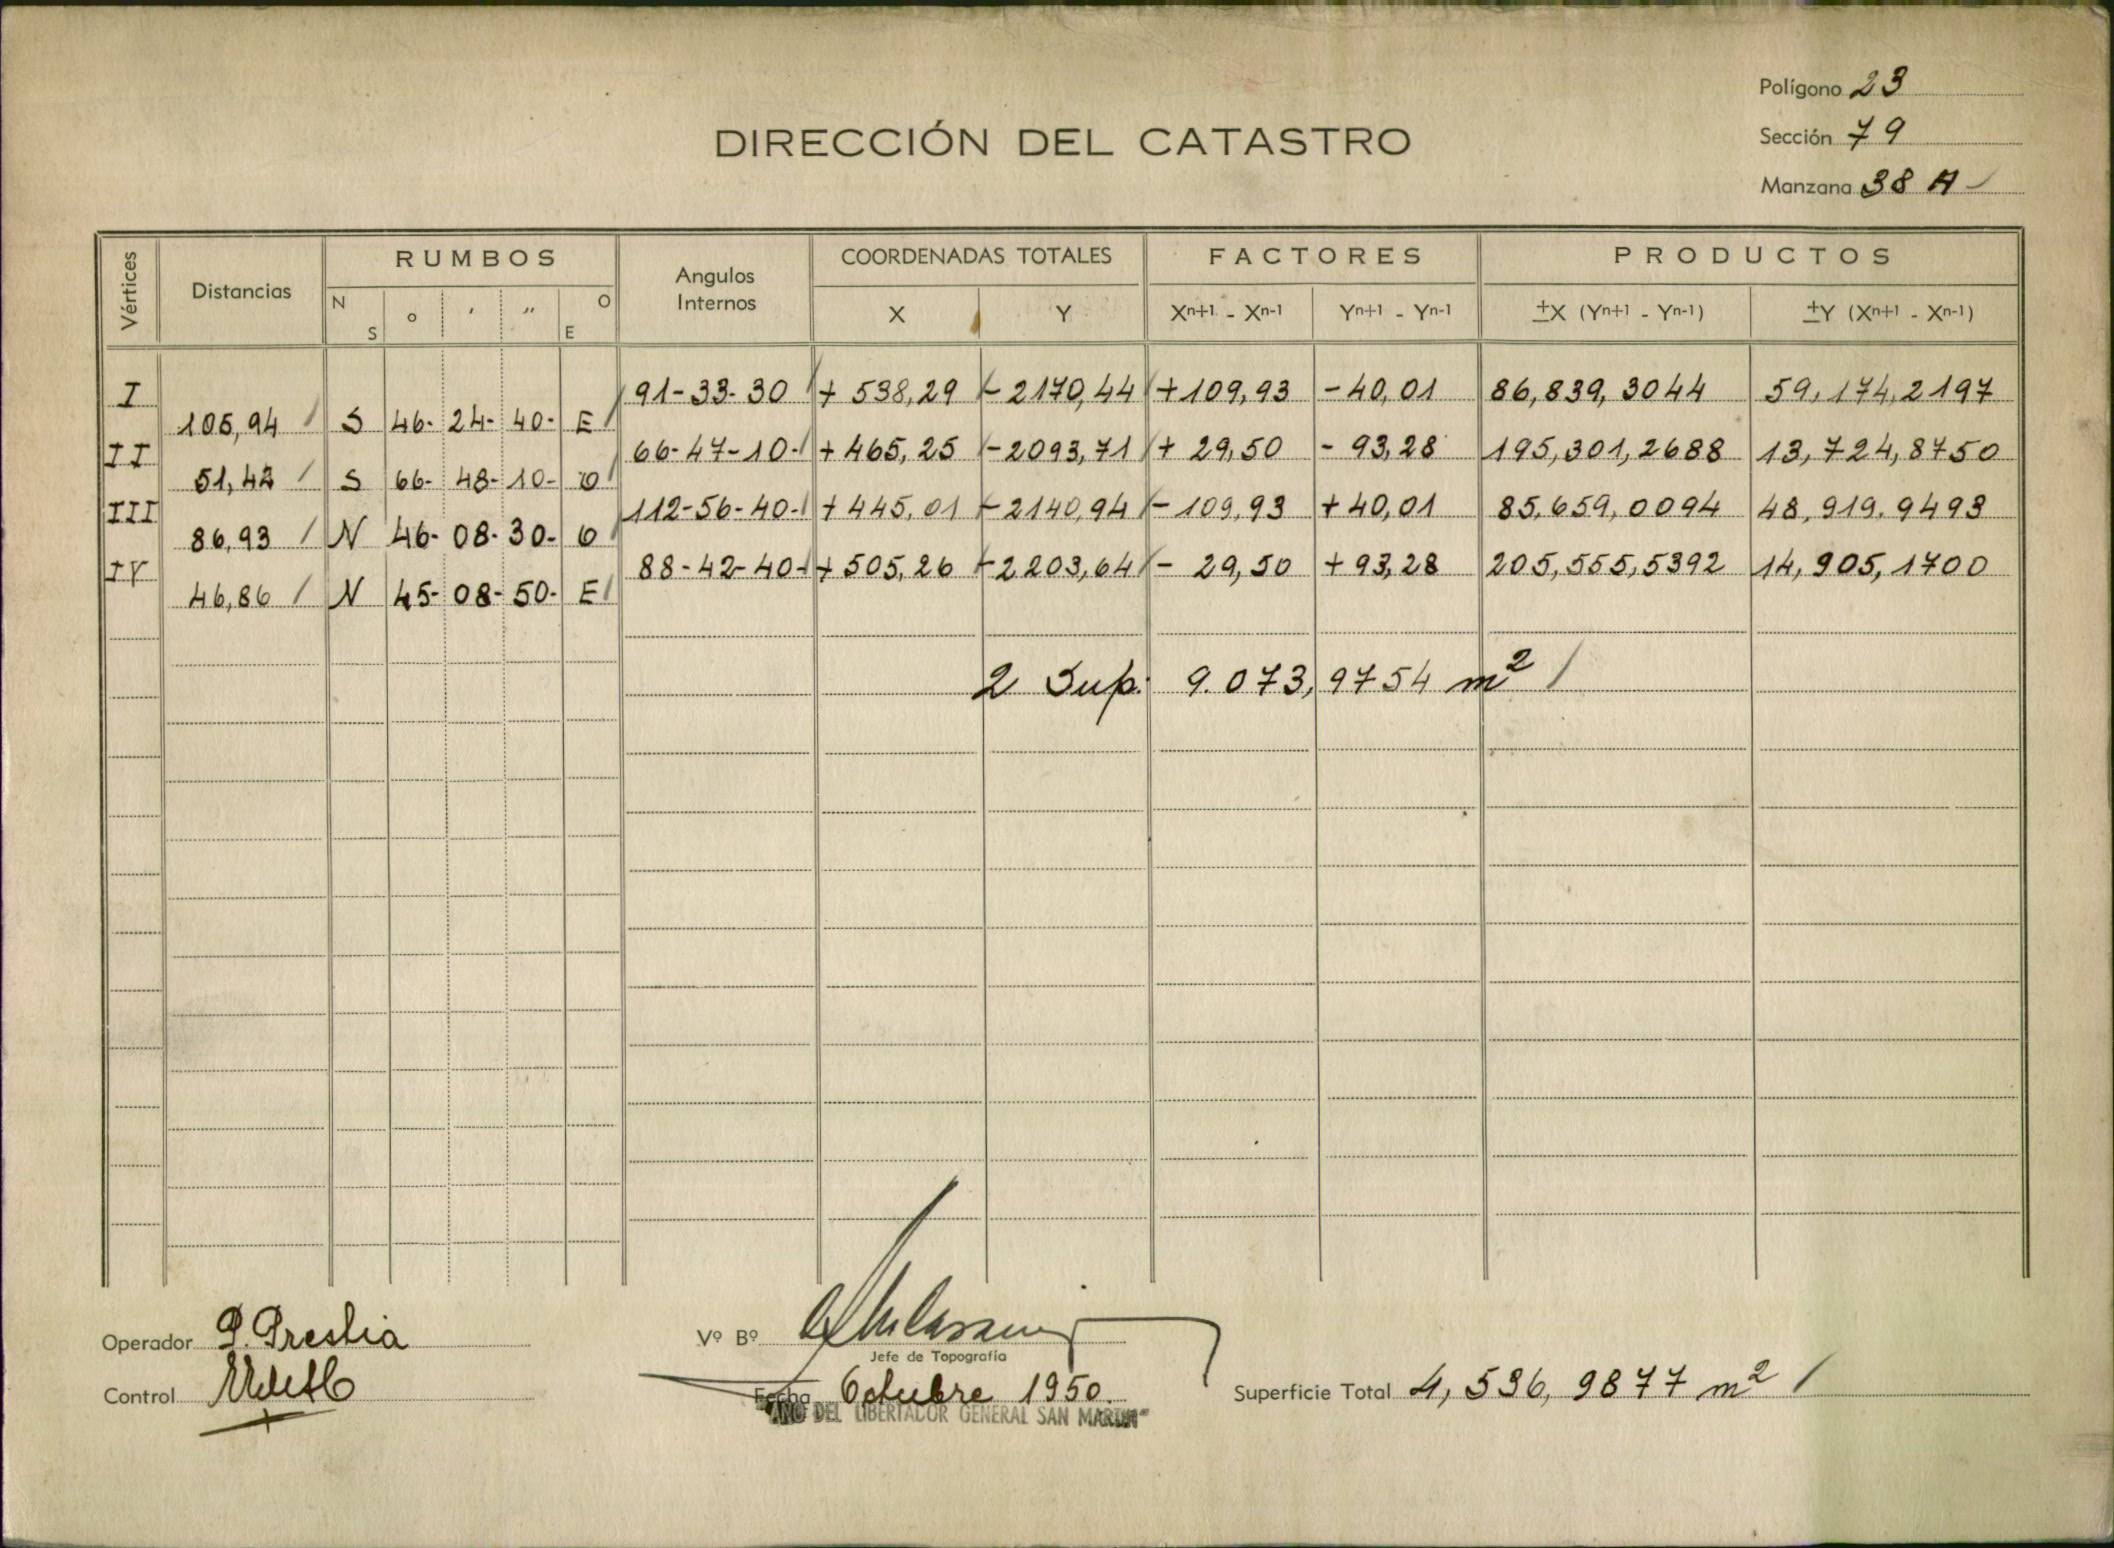 Polígono 23
Sección 79
Manzana 38 A
DIRECCIÓN DEL CATASTRO
Vértices Distancias RUMBOS Angulos Internos COORDENADAS TOTALES FACTORES PRODUCTOS
N S o ' " O E X Y Xn+1 - Xn-1 Yn+1 - Yn-1 ±X (Yn+1 - Yn-1) ±Y (Xn+1 - Xn-1)
I 91-33-30 + 538,29 - 2170,44 +109,93 -40,01 86,839,3044 59,174,2197
105,94 S 46- 24- 40- E
II 66-47-10- +465,25 -2093,71 + 29,50 - 93,28 195,301,2688 13,724,8750
51,42 S 66- 48- 10- O
III 112-56-40- +445,01 -2140,94 - 109,93 +40,01 85,659,0094 48,919,9493
86,93 N 46- 08- 30- O
IV 88-42-40- +505,26 -2203,64 - 29,50 +93,28 205,555,5392 14,905,1700
46,86 N 45- 08- 50- E
2 Sup. 9.073,9754 m²
Operador P. Preslia
Vº Bº
Jefe de Topografía
Control
Fecha Octubre 1950.
"AÑO DEL LIBERTADOR GENERAL SAN MARTIN"
Superficie Total 4,536,9877 m²